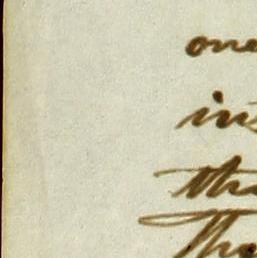 one
in
the
The